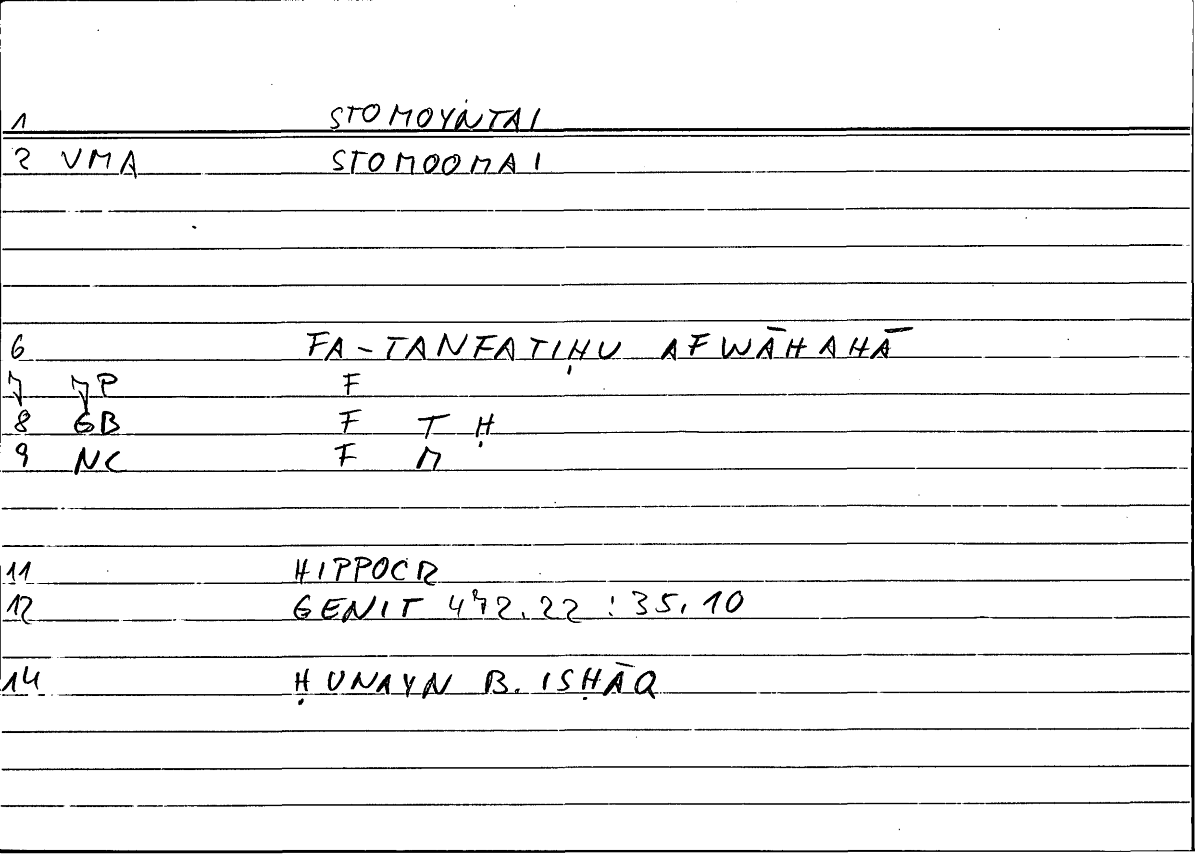 1 STOMOYNTAI
2 VMA STOMOOMAI
6 FA-TANFATIḤU AFWĀHAHĀ
7 7P F
8 GB F T Ḥ
9 NC F M
11 HIPPOCR
12 GENIT 472.22 : 35.10
14 ḤUNAYN B. ISḤĀQ